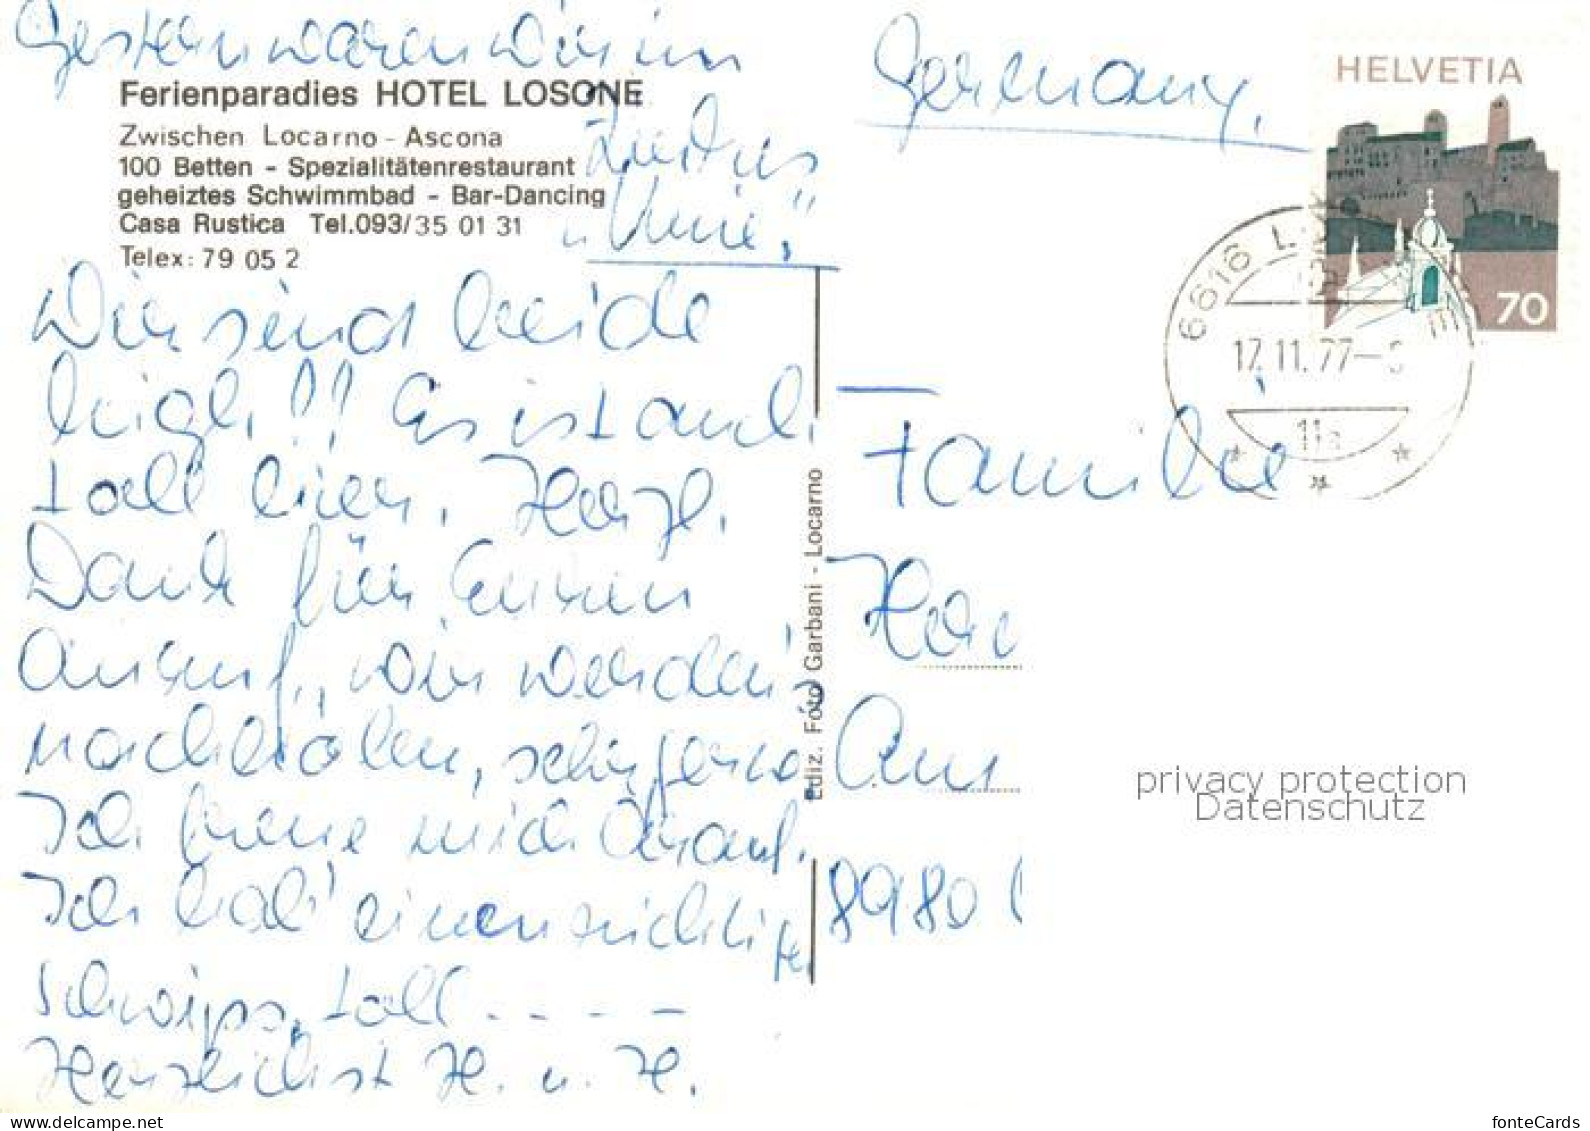 Gestern waren wir im
Ferienparadies HOTEL LOSONE
Zwischen Locarno - Ascona
100 Betten - Spezialitätenrestaurant
geheiztes Schwimmbad - Bar-Dancing
Casa Rustica Tel.093/35 01 31
Telex: 79 05 2
Zirkus
"Knie".
Wir sind beide
high!! Es ist auch
toll hier. Herzl.
Dank für Euren
Anruf, wir werden's
nachholen,
Ich freue mich darauf.
Ich hab' einen richtigen
Schwips, toll - - - -
Herzlichst H. u. H.
Ediz. Foto Garbani - Locarno
Germany.
HELVETIA
70
6616 L E
17.11.77-
11a
Familie
Am
8980
privacy protection
Datenschutz
www.delcampe.net
fonteCards